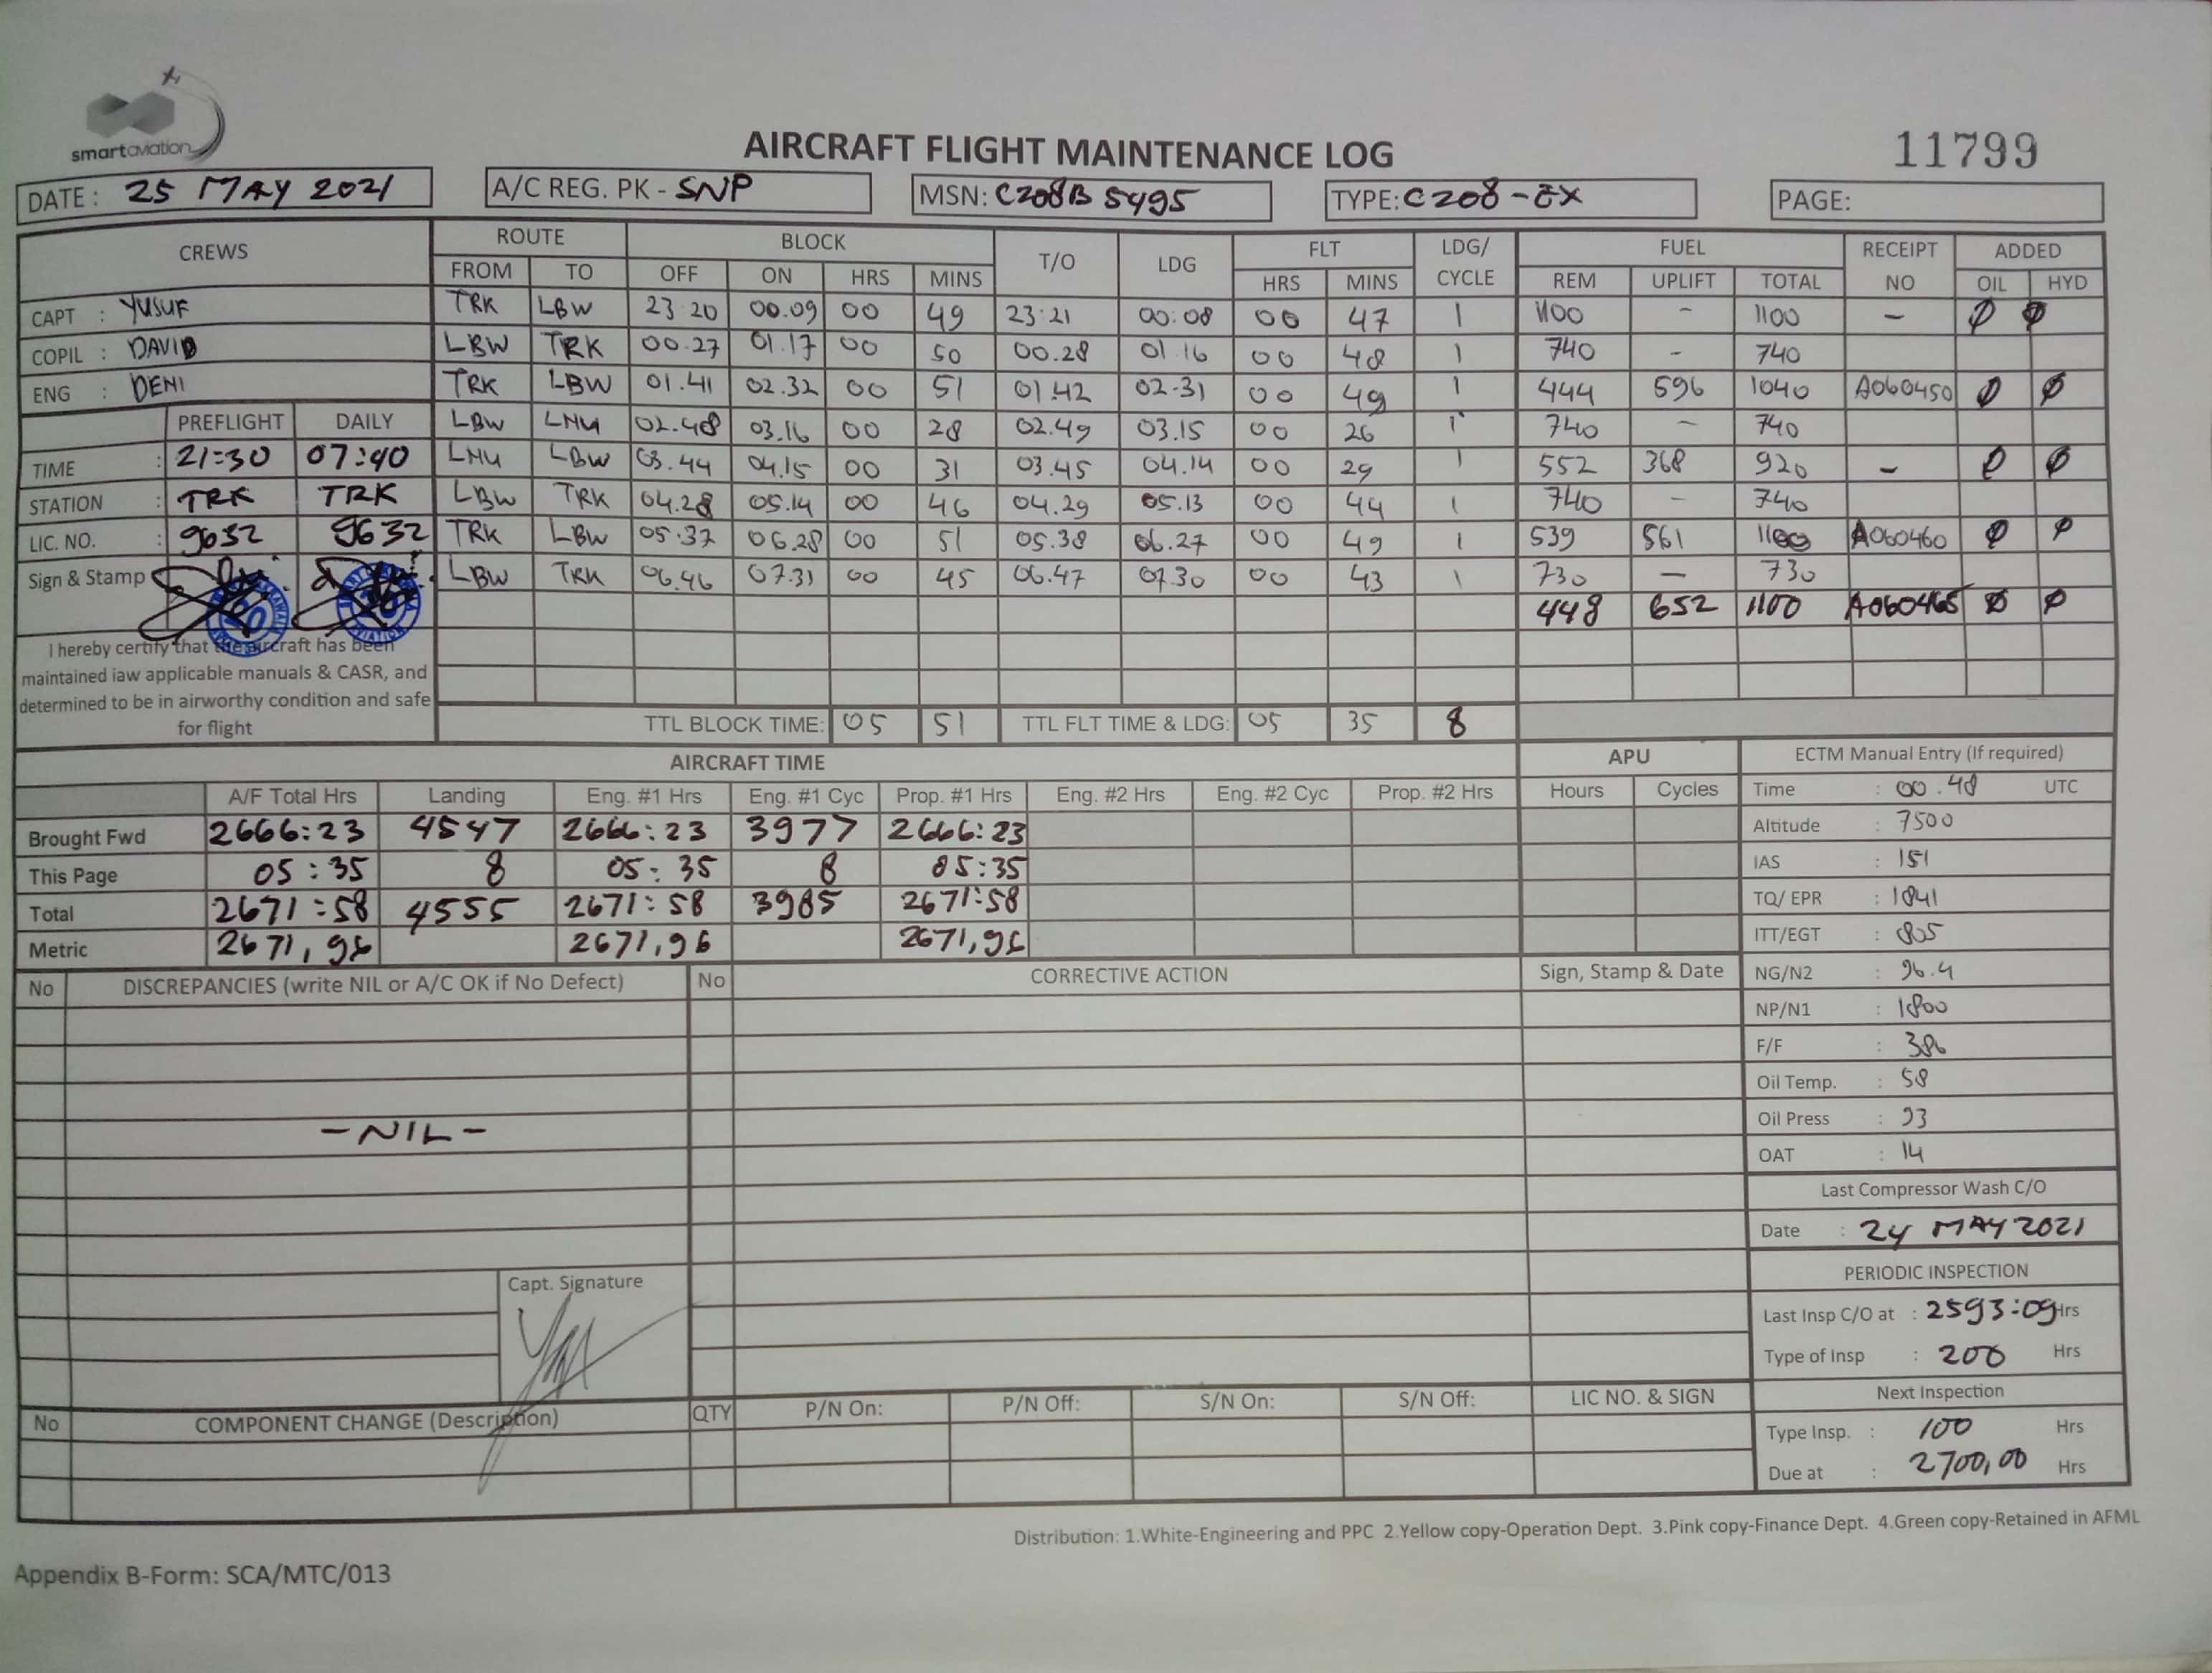 smartaviation
AIRCRAFT FLIGHT MAINTENANCE LOG
11799
DATE : 25 MAY 2021 A/C REG. PK - SNP MSN: C208B 5495 TYPE: C208-EX PAGE:
CREWS ROUTE BLOCK T/O LDG FLT LDG/ CYCLE FUEL RECEIPT NO ADDED
FROM TO OFF ON HRS MINS HRS MINS REM UPLIFT TOTAL OIL HYD
CAPT : YUSUF TRK LBW 23 20 00.09 00 49 23:21 00:08 00 47 1 1100 - 1100 - Ø Ø
COPIL : DAVID LBW TRK 00.27 01.17 00 50 00.28 01.16 00 48 1 740 - 740
ENG : DENI TRK LBW 01.41 02.32 00 51 01.42 02.31 00 49 1 444 596 1040 A060450 Ø Ø
PREFLIGHT DAILY LBW LNU 02.48 03.16 00 28 02.49 03.15 00 26 1 740 - 740
TIME : 21:30 07:40 LNU LBW 03.44 04.15 00 31 03.45 04.14 00 29 1 552 368 920 - Ø Ø
STATION : TRK TRK LBW TRK 04.28 05.14 00 46 04.29 05.13 00 44 1 740 - 740
LIC. NO. : 9632 9632 TRK LBW 05.37 06.28 00 51 05.38 06.27 00 49 1 539 561 1100 A060460 Ø Ø
Sign & Stamp LBW TRK 06.46 07.31 00 45 06.47 07.30 00 43 1 730 - 730
448 652 1100 A060465 Ø Ø
I hereby certify that the aircraft has been
maintained iaw applicable manuals & CASR, and
determined to be in airworthy condition and safe
for flight
TTL BLOCK TIME: 05 51 TTL FLT TIME & LDG: 05 35 8
AIRCRAFT TIME APU ECTM Manual Entry (If required)
A/F Total Hrs Landing Eng. #1 Hrs Eng. #1 Cyc Prop. #1 Hrs Eng. #2 Hrs Eng. #2 Cyc Prop. #2 Hrs Hours Cycles Time : 00.48 UTC
Brought Fwd 2666:23 4547 2666:23 3977 2666:23 Altitude : 7500
This Page 05:35 8 05:35 8 05:35 IAS : 151
Total 2671:58 4555 2671:58 3985 2671:58 TQ/ EPR : 1841
Metric 2671,96 2671,96 2671,96 ITT/EGT : 805
No DISCREPANCIES (write NIL or A/C OK if No Defect) No CORRECTIVE ACTION Sign, Stamp & Date NG/N2 : 96.4
NP/N1 : 1800
F/F : 386
Oil Temp. : 58
- NIL - Oil Press : 93
OAT : 14
Last Compressor Wash C/O
Date : 24 MAY 2021
PERIODIC INSPECTION
Capt. Signature
Last Insp C/O at : 2593:09 Hrs
Type of Insp : 200 Hrs
Next Inspection
No COMPONENT CHANGE (Description) QTY P/N On: P/N Off: S/N On: S/N Off: LIC NO. & SIGN
Type Insp. : 100 Hrs
Due at : 2700,00 Hrs
Distribution: 1.White-Engineering and PPC 2.Yellow copy-Operation Dept. 3.Pink copy-Finance Dept. 4.Green copy-Retained in AFML
Appendix B-Form: SCA/MTC/013